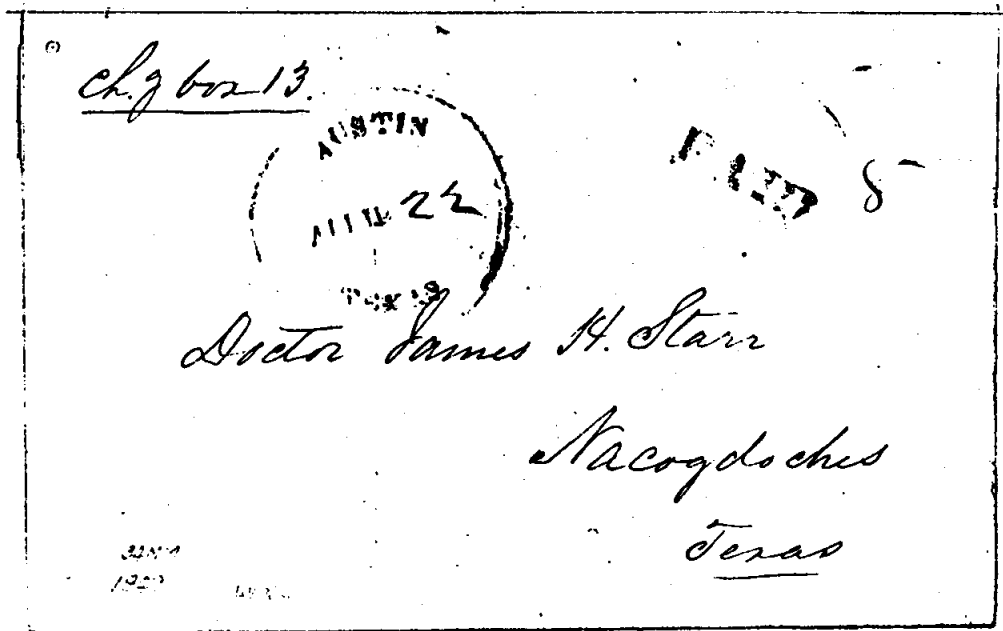 ch. g box 13.
AUSTIN
22
TEXAS
PAID 5
Doctor James H. Starr
Nacogdoches
Texas